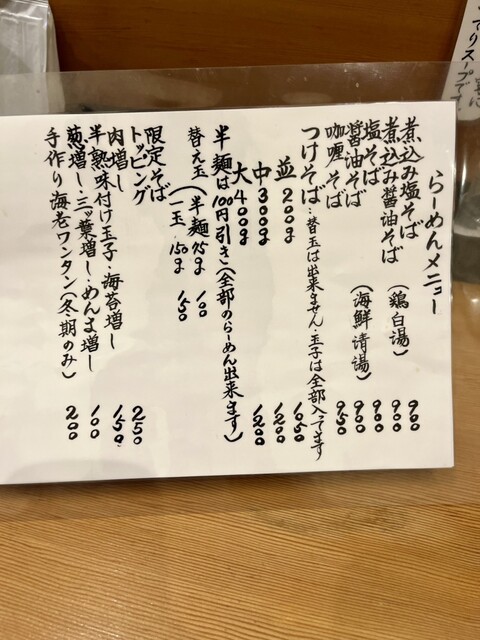 らーめんメニュー
煮込み塩そば 900
煮込み醤油そば (鶏白湯) 900
塩そば 900
醤油そば (海鮮清湯) 900
咖喱そば 950
つけそば・替玉は出来ません・玉子は全部入ってます
並 200g 1050
中 300g 1200
大 400g 1200
半麺は100円引き(全部のらーめん出来ます)
替え玉 (半麺 75g 100
一玉 150g 150
限定そば
トッピング
肉増し 250
半熟味付け玉子・海苔増し 150
葱増し・三ッ葉増し・めんま増し 100
手作り海老ワンタン(冬期のみ) 200
てりスープです